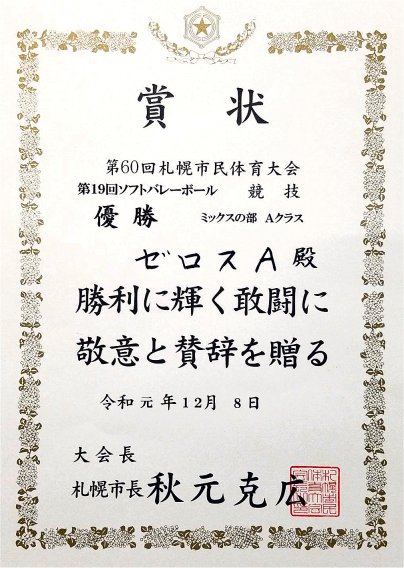 賞状
第60回札幌市民体育大会
第19回ソフトバレーボール 競技
優勝 ミックスの部 Aクラス
ゼロスA 殿
勝利に輝く敢闘に
敬意と賛辞を贈る
令和元年12月 8日
大会長
札幌市長 秋元克広